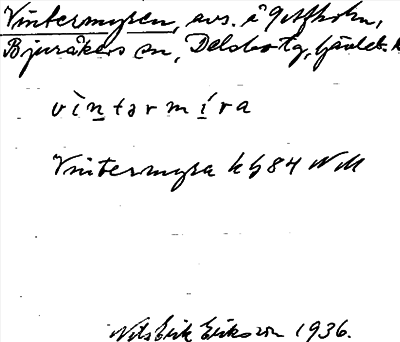 Vintermyren, avs. i Gulfhohn,
Bjuråkers sn, Delsbo tg, Gävleb. l
vìntarmíra
Vintermyra kb 84 NM
Nils Erik Eriksson 1936.